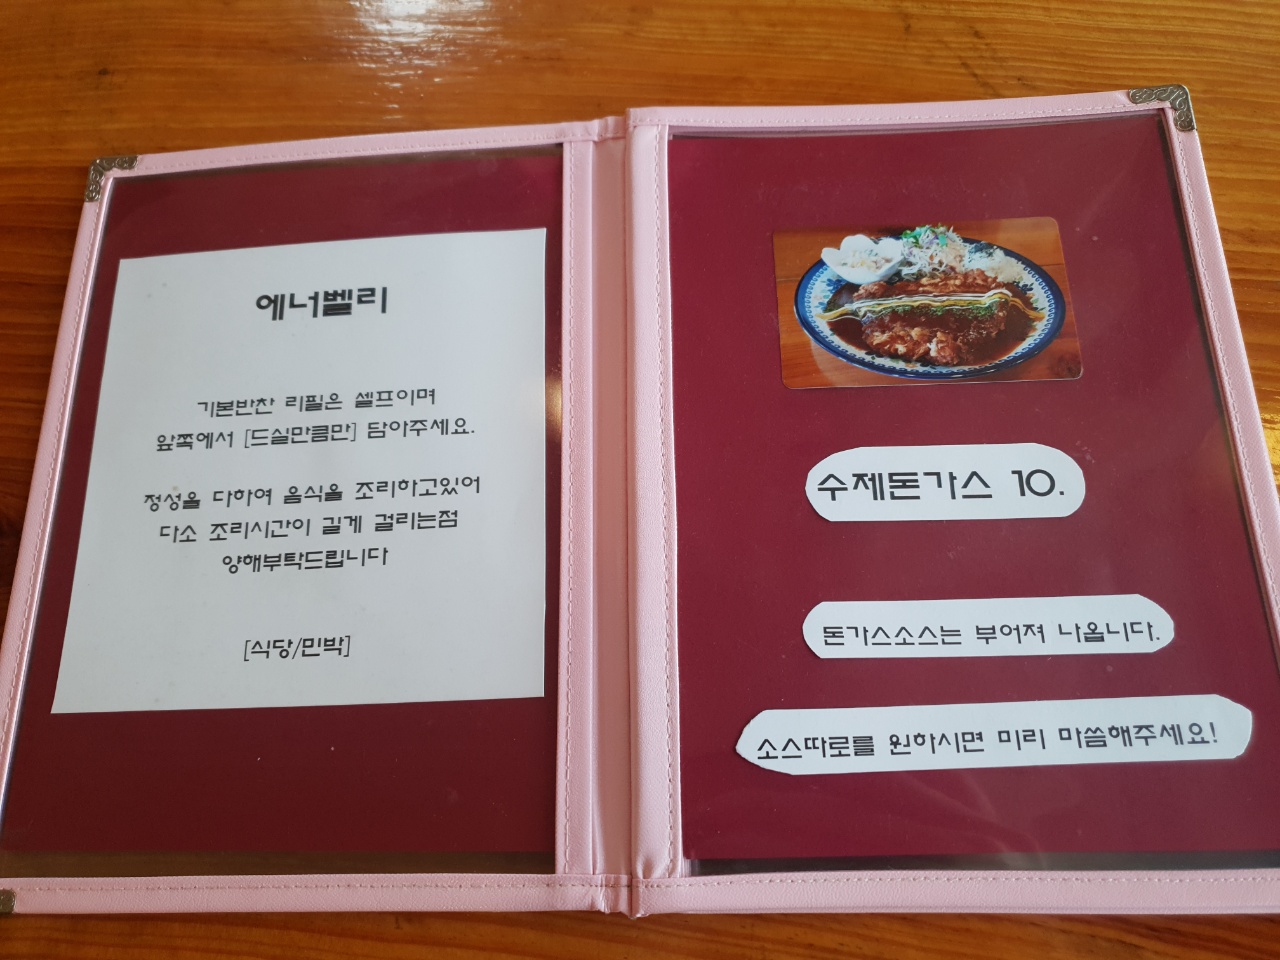 에너벨리
기본반찬 리필은 셀프이며
앞쪽에서 [드실만큼만] 담아주세요.
정성을 다하여 음식을 조리하고있어
다소 조리시간이 길게 걸리는점
양해부탁드립니다
[식당/민박]
수제돈가스 10.
돈가스소스는 부어져 나옵니다.
소스따로를 원하시면 미리 마씀해주세요!